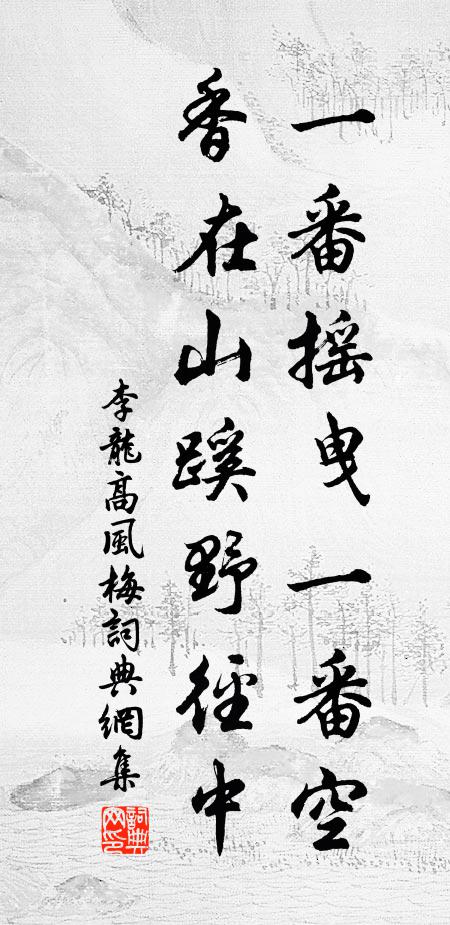 一番摇曳一番空
香在山蹊野徑中
李龍高風梅詞典網集
詞典网印